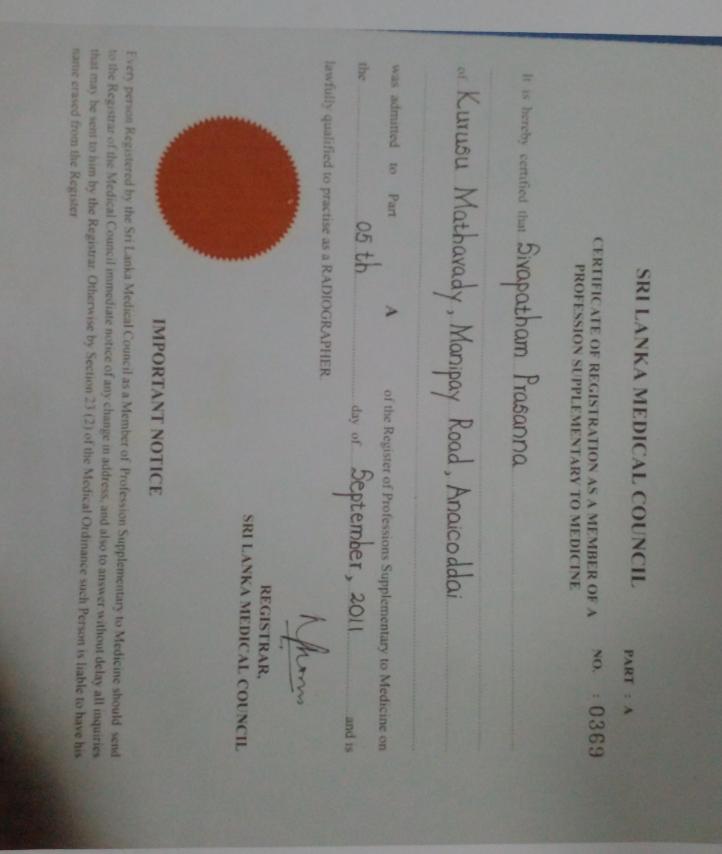 SRI LANKA MEDICAL COUNCIL
PART : A
CERTIFICATE OF REGISTRATION AS A MEMBER OF A
NO. : 0369
PROFESSION SUPPLEMENTARY TO MEDICINE
It is hereby certified that Sivapatham Prasanna
of Kurusu Mathavady, Manipay Road, Anaicoddai
was admitted to Part A of the Register of Professions Supplementary to Medicine on
the 05 th day of September, 2011 and is
lawfully qualified to practise as a RADIOGRAPHER.
REGISTRAR,
SRI LANKA MEDICAL COUNCIL
IMPORTANT NOTICE
Every person Registered by the Sri Lanka Medical Council as a Member of Profession Supplementary to Medicine should send
to the Registrar of the Medical Council immediate notice of any change in address, and also to answer without delay all inquiries
that may be sent to him by the Registrar. Otherwise by Section 23 (2) of the Medical Ordinance such Person is liable to have his
name erased from the Register